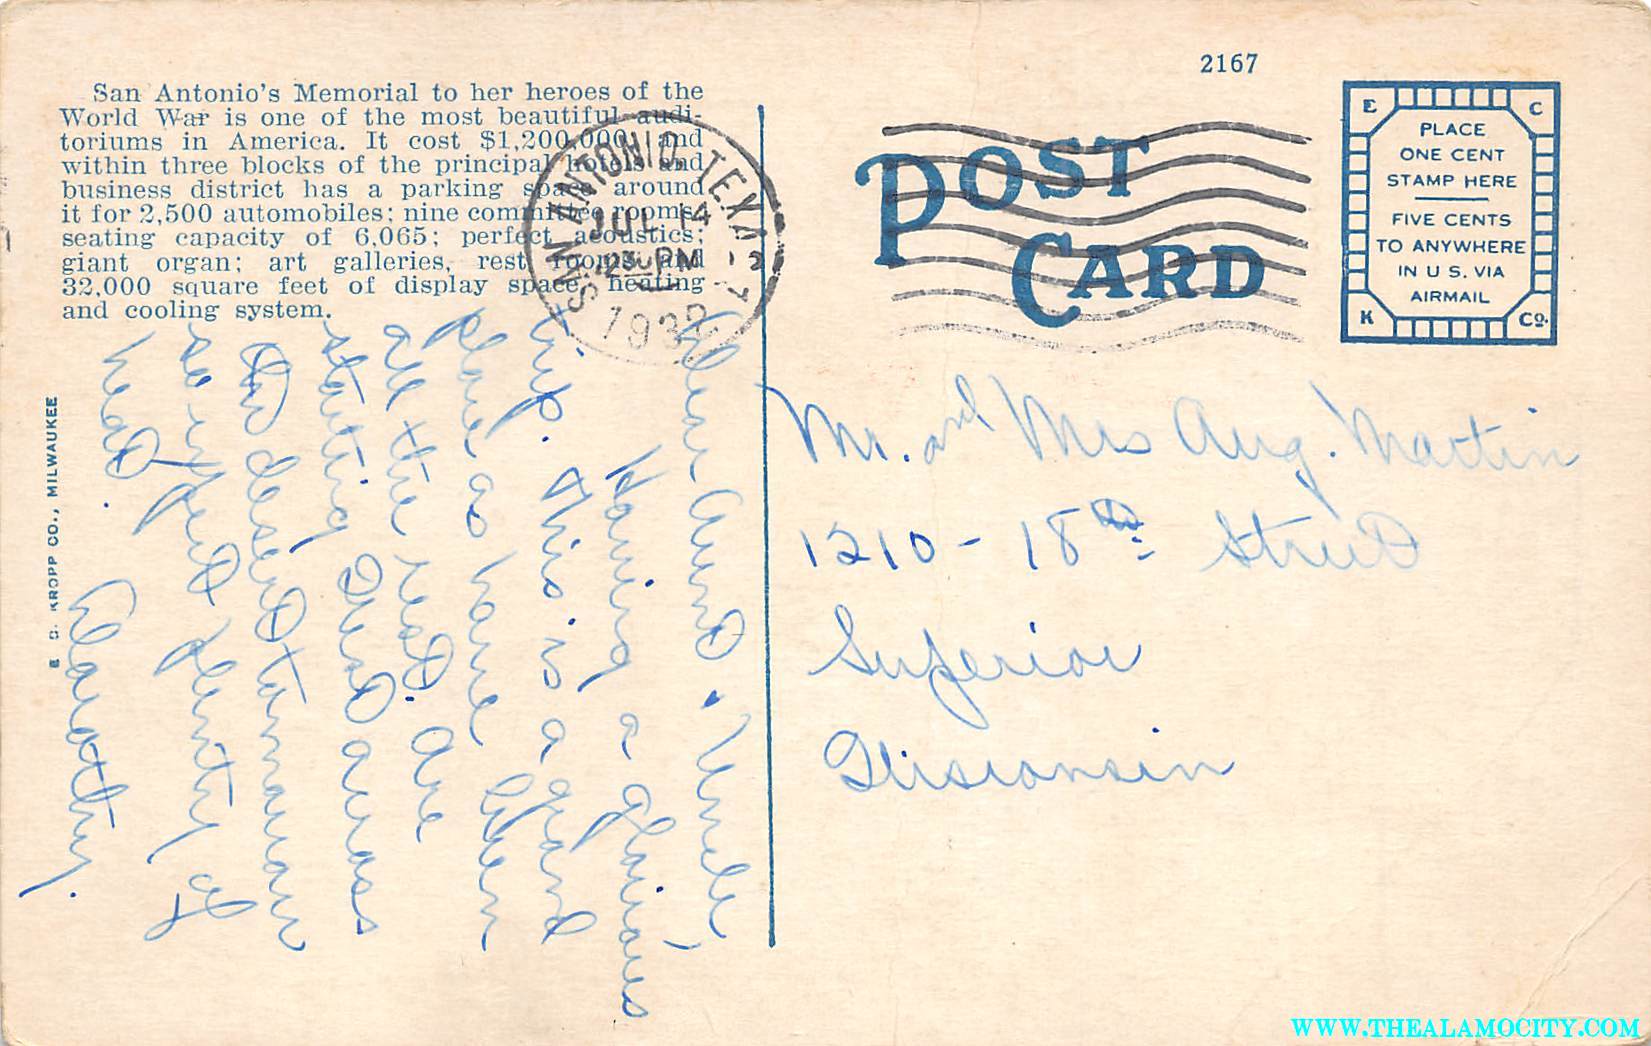 San Antonio's Memorial to her heroes of the
World War is one of the most beautiful audi-
toriums in America. It cost $1,200,000; and
within three blocks of the principal hotels and
business district has a parking space around
it for 2,500 automobiles; nine committee rooms;
seating capacity of 6,065; perfect acoustics;
giant organ; art galleries, rest rooms and
32,000 square feet of display space, heating
and cooling system.
SAN ANTONIO, TEXAS
JUL 14
PM
193
2167
POST
CARD
E C
PLACE
ONE CENT
STAMP HERE
FIVE CENTS
TO ANYWHERE
IN U S. VIA
AIRMAIL
K Co.
E. C. KROPP CO., MILWAUKEE
Dear Aunt & Uncle,
Having a glorious
trip. This is a grand
place as have been
all the rest. Are
starting West across
the desert tomorrow
so expect plenty of
heat.
Dorothy.
Mr. and Mrs Aug. Martin
1210 - 18th Street
Superior
Wisconsin
WWW.THEALAMOCITY.COM